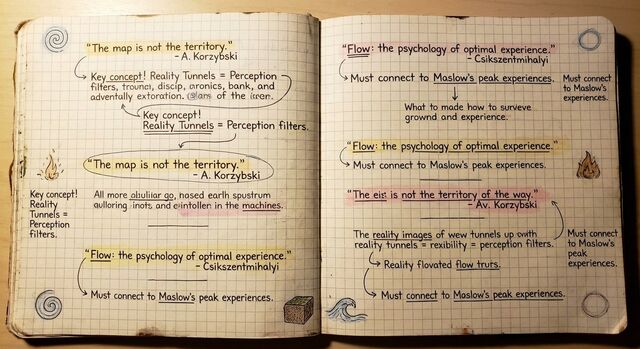 "The map is not the territory."
- A. Korzybski
Key concept! Reality Tunnels = Perception
filters, discip, aronics, bank, and
adventally extoration. of the
Key concept!
Reality Tunnels = Perception filters.
"The map is not the territory."
- A. Korzybski
Key concept!
Reality
Tunnels =
Perception
filters.
All more go, nased earth spustrum
inots and in the machines.
"Flow: the psychology of optimal experience."
- Csikszentmihalyi
Must connect to Maslow's peak experiences.
"Flow: the psychology of optimal experience."
- Csikszentmihalyi
Must connect to Maslow's peak experiences.
Must connect
to Maslow's
experiences.
What to made how to surveve
grownd and experience.
"Flow: the psychology of optimal experience."
Must connect to Maslow's peak experiences.
"The is not the territory of the way."
- Av. Korzybski
The reality images of wew tunnels up
reality tunnels = rexibility = perception filters.
Reality flovated flow truts.
Must connect
to Maslow's
peak
experiences.
Must connect to Maslow's peak experiences.